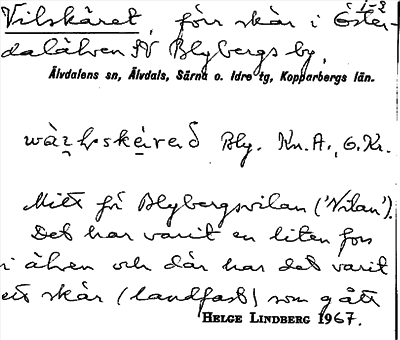 1-2
Vilskäret, förr skär i Öster-
dalälven SV Blybergs by,
Älvdalens sn, Älvdals, Särna o. Idre tg, Kopparbergs län.
Bly. Kn. A., G. Kr.
Mitt för Blybergsvilan ('Vilan').
Det har varit en liten fors
i älven och där har det varit
ett skär (landfast) som gått
HELGE LINDBERG 1967.